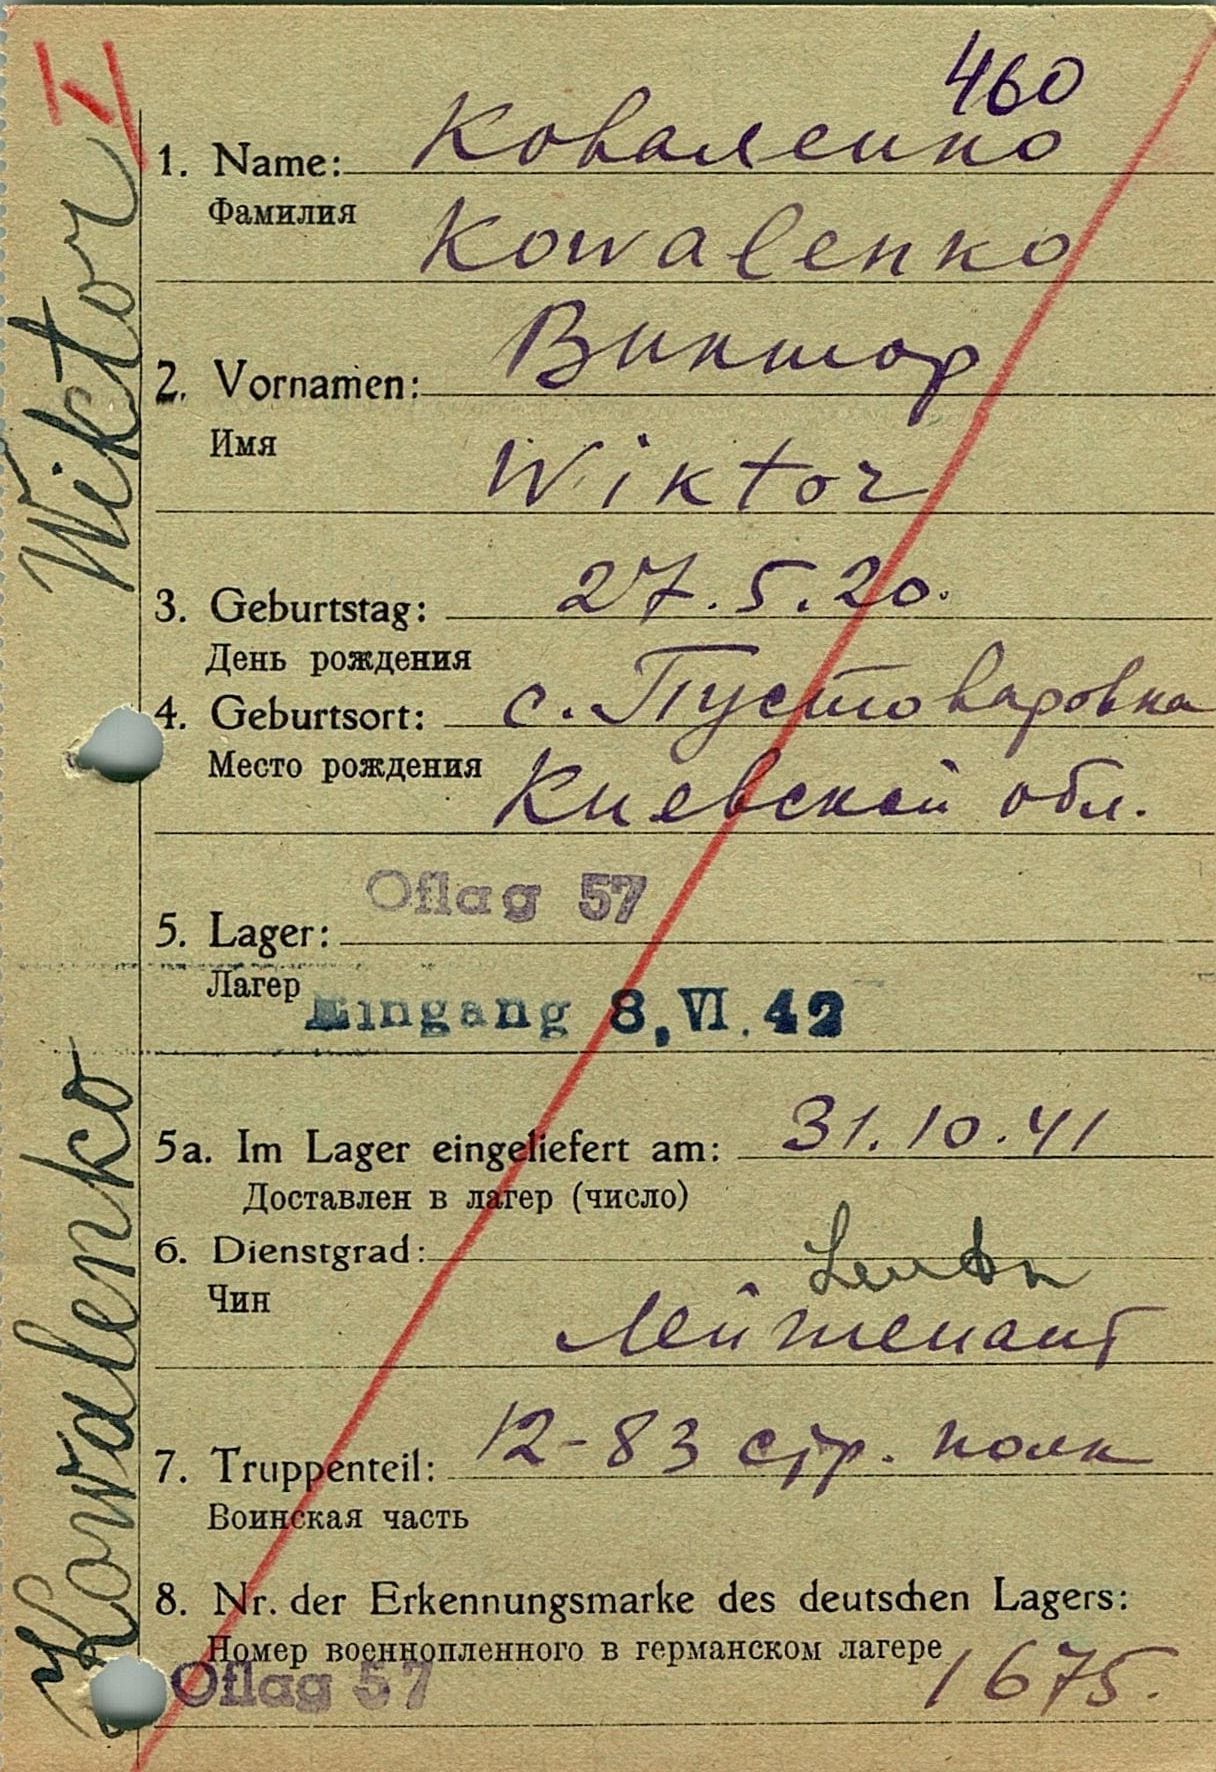 460
1. Name: Коваленко
Фамилия
Kowalenko
2. Vornamen: Виктор
Имя
Wiktor
3. Geburtstag: 27.5.20.
День рождения
4. Geburtsort: с. Пустоваровка
Место рождения Киевской обл.
Oflag 57
5. Lager:
Лагер
Eingang 8. VI. 42
5a. Im Lager eingeliefert am: 31.10.41
Доставлен в лагер (число)
6. Dienstgrad:
Чин
Лейтенант
7. Truppenteil: 12-83 стр. полк
Воинская часть
8. Nr. der Erkennungsmarke des deutschen Lagers:
Номер военнопленного в германском лагере 1675.
Oflag 57
Kowalenko Wiktor